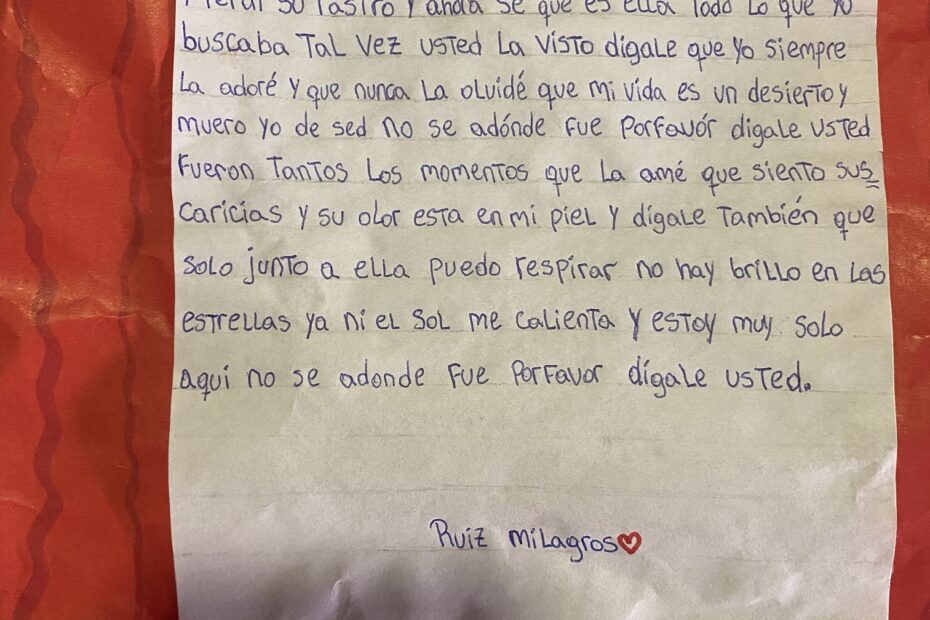 su rastro y ahora se que es ella todo lo que yo
buscaba Tal vez usted la visto digale que yo siempre
la adoré y que nunca la olvidé que mi vida es un desierto y
muero yo de sed no se adónde fue porfavór digale usted
fueron tantos los momentos que la amé que siento sus
caricias y su olor esta en mi piel y dígale también que
solo junto a ella puedo respirar no hay brillo en las
estrellas ya ni el sol me calienta y estoy muy solo
aqui no se adonde fue porfavor dígale usted.
Ruiz Milagros